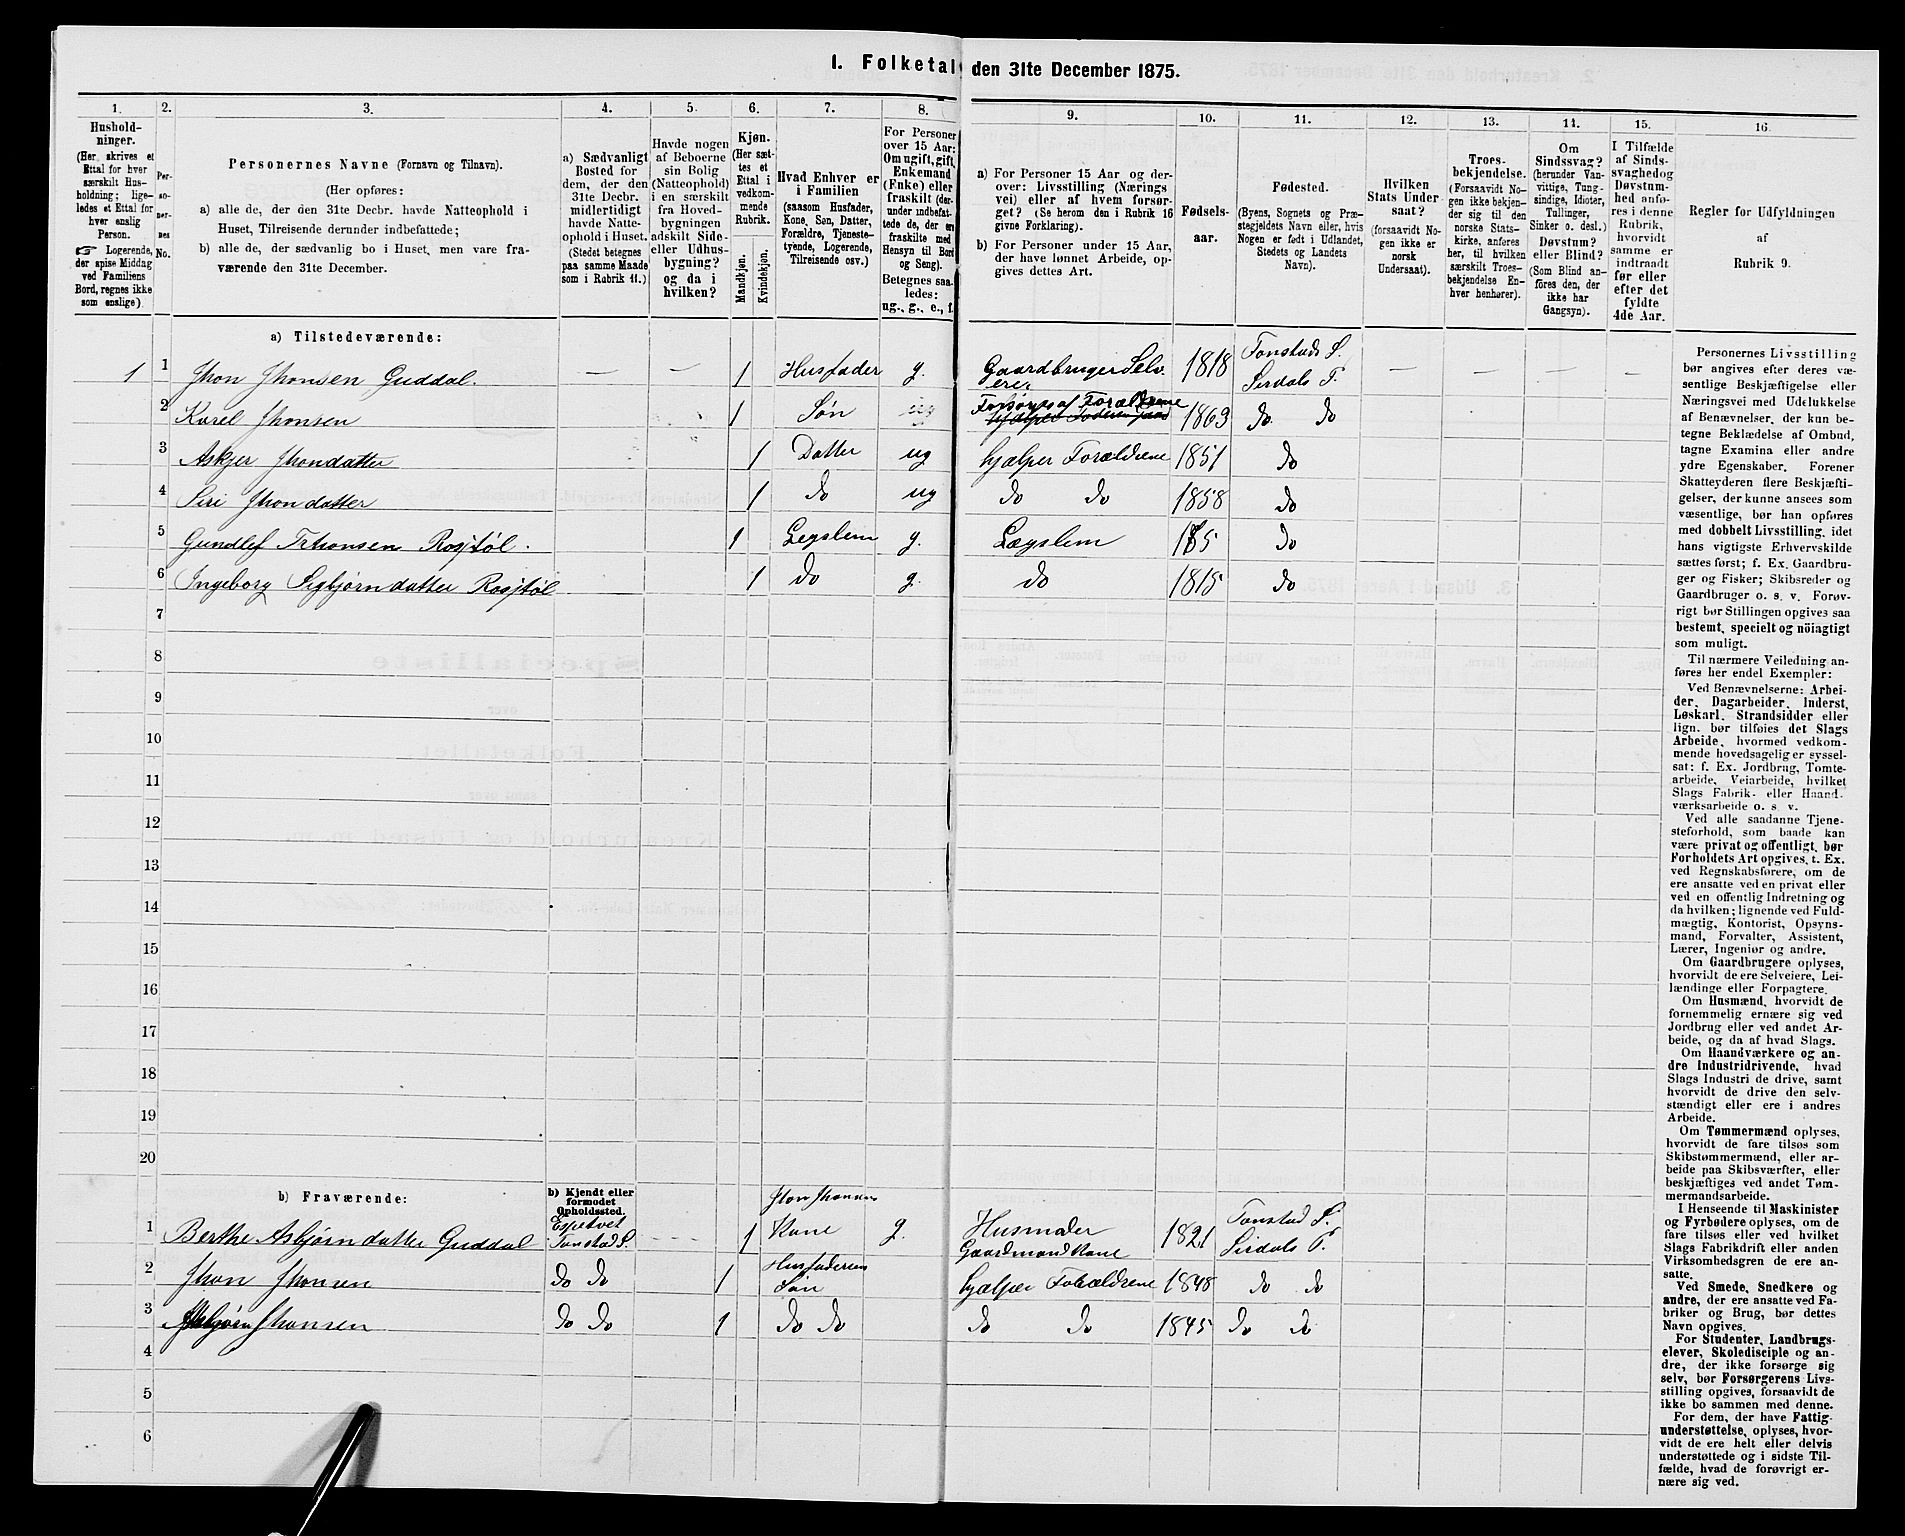 I. Folketal den 31te December 1875.
1. 2. 3. 4. 5. 6. 7. 8. 9. 10. 11. 12. 13. 14. 15. 16.
Hushold-
ninger.
(Her skrives et
Ettal for hver
særskilt Hus-
holdning; lige-
ledes et Ettal for
hver enslig
Person.
☞ Logerende,
der spise Middag
ved Familiens
Bord, regnes ikke
som enslige).
Per-
so-
ner-
nes
No.
Personernes Navne (Fornavn og Tilnavn).
(Her opføres:
a) alle de, der den 31te Decbr. havde Natteophold i
Huset, Tilreisende derunder indbefattede;
b) alle de, der sædvanlig bo i Huset, men vare fra-
værende den 31te December.
a) Sædvanligt
Bosted for
dem, der den
31te Decbr.
midlertidigt
havde Natte-
ophold i Huset.
(Stedet betegnes
paa samme Maade
som i Rubrik 11.)
Havde nogen
af Beboerne
sin Bolig
(Natteophold)
i en særskilt
fra Hoved-
bygningen
adskilt Side-
eller Udhus-
bygning?
og da i
hvilken?
Kjøn.
(Her sæt-
tes et
Ettal i
vedkom-
mende
Rubrik.
Mandkjøn.
Kvindekjøn.
Hvad Enhver er
i Familien
(saasom Husfader,
Kone, Søn, Datter,
Forældre, Tjeneste-
tyende, Logerende,
Tilreisende osv.)
For Personer
over 15 Aar:
Om ugift, gift,
Enkemand
(Enke) eller
fraskilt (der-
under indbefat-
tede de, der ere
fraskilte med
Hensyn til Bord
og Seng).
Betegnes saa-
ledes:
ug., g., e., f.
a) For Personer 15 Aar og der-
over: Livsstilling (Nærings
vei) eller af hvem forsør-
get? (Se herom den i Rubrik 16
givne Forklaring).
b) For Personer under 15 Aar,
der have lønnet Arbeide, op-
gives dettes Art.
Fødsels-
aar.
Fødested.
(Byens, Sognets og Præ-
stegjeldets Navn eller, hvis
Nogen er født i Udlandet,
Stedets og Landets
Navn).
Hvilken
Stats Under
saat?
(forsaavidt No-
gen ikke er
norsk
Undersaat).
Troes-
bekjendelse.
(Forsaavidt No-
gen ikke bekjen-
der sig til den
norske Stats-
kirke, anføres
her, til hvilken
særskilt Troes-
bekjendelse En-
hver henhører).
Om
Sindssvag?
(herunder Van-
vittige, Tung-
sindige, Idioter,
Tullinger,
Sinker o. desl.)
Døvstum?
eller Blind?
(Som Blind an-
føres den, der
ikke har
Gangsyn).
I Tilfælde
af Sinds-
svaghed og
Døvstum-
hed anfø-
res i denne
Rubrik,
hvorvidt
samme er
indtraadt
før eller
efter det
fyldte
4de Aar.
Regler for Udfyldningen
af
Rubrik 9.
a) Tilstedeværende:
1 1 Jhon Jhonsen Guddal. — — 1 Husfader g. Gaardbruger Selv-
ere. 1818 Tonstads S.
Sirdals P. - - - -
2 Karel Jhonsen 1 Søn ug Forsørges af Forældrene 1863 do do
3 Askjer Jhondatter 1 Datter ug hjælper Forældrene 1851 do
4 Siri Jhondatter 1 do ug do do 1858 do
5 Gundlef Trhonsen Rosjtøl. 1 Legslem g. Lægslem do
6 Ingeborg Sigbjørndatter Rosjtøl 1 do g. do 1815 do
7
8
9
10
11
12
13
14
15
16
17
18
19
20
b) Fraværende:
b) Kjendt eller
formodet
Opholdssted.
1 Berthe Asbjørndatter Guddal Espetvet
Tonstad S. 1 Jhon Jhonsens
Kone g. Husmoder
Gaardmandkone 1821 Tonstad S.
Sirdals P.
2 Jhon Jhonsen do do 1 Husfaderens
Søn hjælper Forældrene 1848 do do
3 Asbjørn Jhonsen do do 1 do do do do 1845 do do
4
5
6
Personernes Livsstilling
bør angives efter deres væ-
sentlige Beskjæftigelse eller
Næringsvei med Udelukkelse
af Benævnelser, der kun be-
tegne Beklædelse af Ombud,
tagne Examina eller andre
ydre Egenskaber. Forener
Skatteyderen flere Beskjæfti-
gelser, der kunne ansees som
væsentlige, bør han opføres
med dobbelt Livsstilling, idet
hans vigtigste Erhvervskilde
sættes først; f. Ex. Gaardbru-
ger og Fisker; Skibsreder og
Gaardbruger o. s. v. Forøv-
rigt bør Stillingen opgives saa
bestemt, specielt og nöiagtigt
som muligt.
Til nærmere Veiledning an-
føres her endel Exempler:
Ved Benævnelserne: Arbei-
der, Dagarbeider, Inderst,
Løskarl, Strandsidder eller
lign. bør tilføies det Slags
Arbeide, hvormed vedkom-
mende hovedsagelig er syssel-
sat: f. Ex. Jordbrug, Tomte-
arbeide, Veiarbeide, hvilket
Slags Fabrik- eller Haand-
værksarbeide o. s. v.
Ved alle saadanne Tjene-
steforhold, som baade kan
være privat og offentligt, bør
Forholdets Art opgives, t. Ex.
ved Regnskabsførere, om de
ere ansatte ved en privat eller
ved en offentlig Indretning og
da hvilken; lignende ved Fuld-
mægtig, Kontorist, Opsyns-
mand, Forvalter, Assistent,
Lærer, Ingeniør og andre.
Om Gaardbrugere oplyses,
hvorvidt de ere Selveiere, Lei-
lændinge eller Forpagtere.
Om Husmænd, hvorvidt de
fornemmelig ernære sig ved
Jordbrug eller ved andet Ar-
beide, og da af hvad Slags.
Om Haandværkere og an-
dre Industridrivende, hvad
Slags Industri de drive, samt
hvorvidt de drive den selv-
stændigt eller ere i andres
Arbeide.
Om Tømmermænd oplyses,
hvorvidt de fare tilsøs som
Skibstømmermænd, eller ar-
beide paa Skibsværfter, eller
beskjæftiges ved andet Tøm-
mermandsarbeide.
I Henseende til Maskinister
og Fyrbødere oplyses, om de
fare tilsøs eller ved hvilket
Slags Fabrikdrift eller anden
Virksomhedsgren de ere an-
satte.
Ved Smede, Snedkere og
andre, der ere ansatte ved Fa-
briker og Brug, bør dettes
Navn opgives.
For Studenter, Landbrugs-
elever, Skoledisciple og an-
dre, der ikke forsørge sig
selv, bør Forsørgerens Livs-
stilling opgives, forsaavidt de
ikke bo sammen med denne.
For dem, der have Fattig-
understøttelse, oplyses, hvor-
vidt de ere helt eller delvis
understøttede og i sidste Til-
fælde, hvad de forøvrigt er-
nære sig ved.